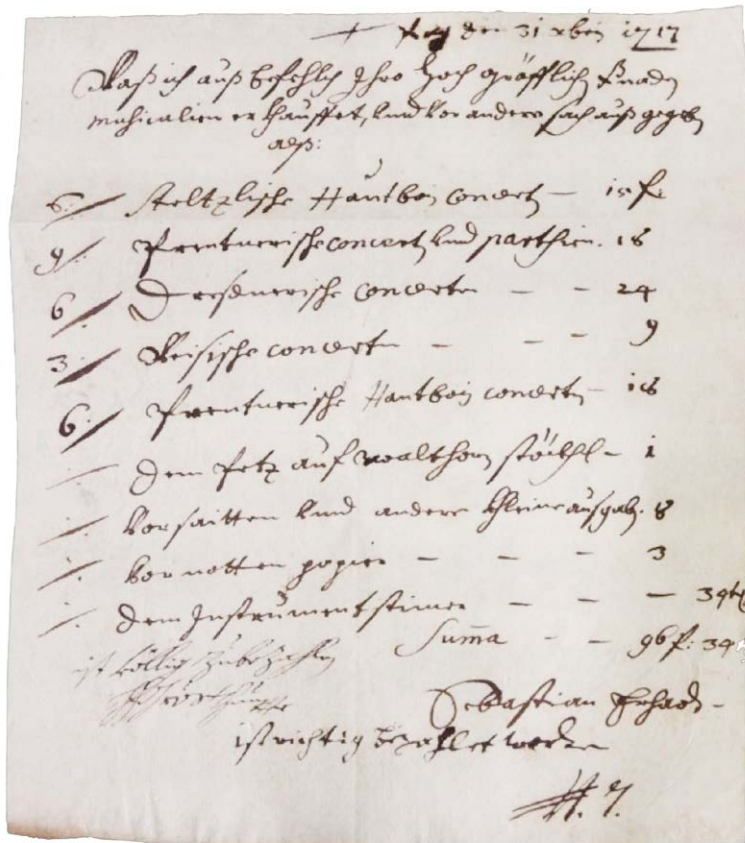 den 31 xbris 1717
Waß ich auß befehlch Ihro Hoch gräfflich gnaden
musicalien erkhauffet, und vor andere sach auß gegeben
alß:
6: Steltzlische Hautbois concert — 15 f.
9: Frentnerische concert und parthien. 18
6: Dresenerische concerten — — 24
3: Reisische concerten — — — 9
6: Frentnerische Hautbois concerten — 18
dem Fetz auf walthorn stückhl — 1
vor saitten und andere kleine ausgab. 8
vor notten papier — — — 3
dem Instrument stimer — — — 39
Summa — — 96 f: 39
ist völlig zubezahlen
Sebastian Erhard
ist richtig bezahlet worden